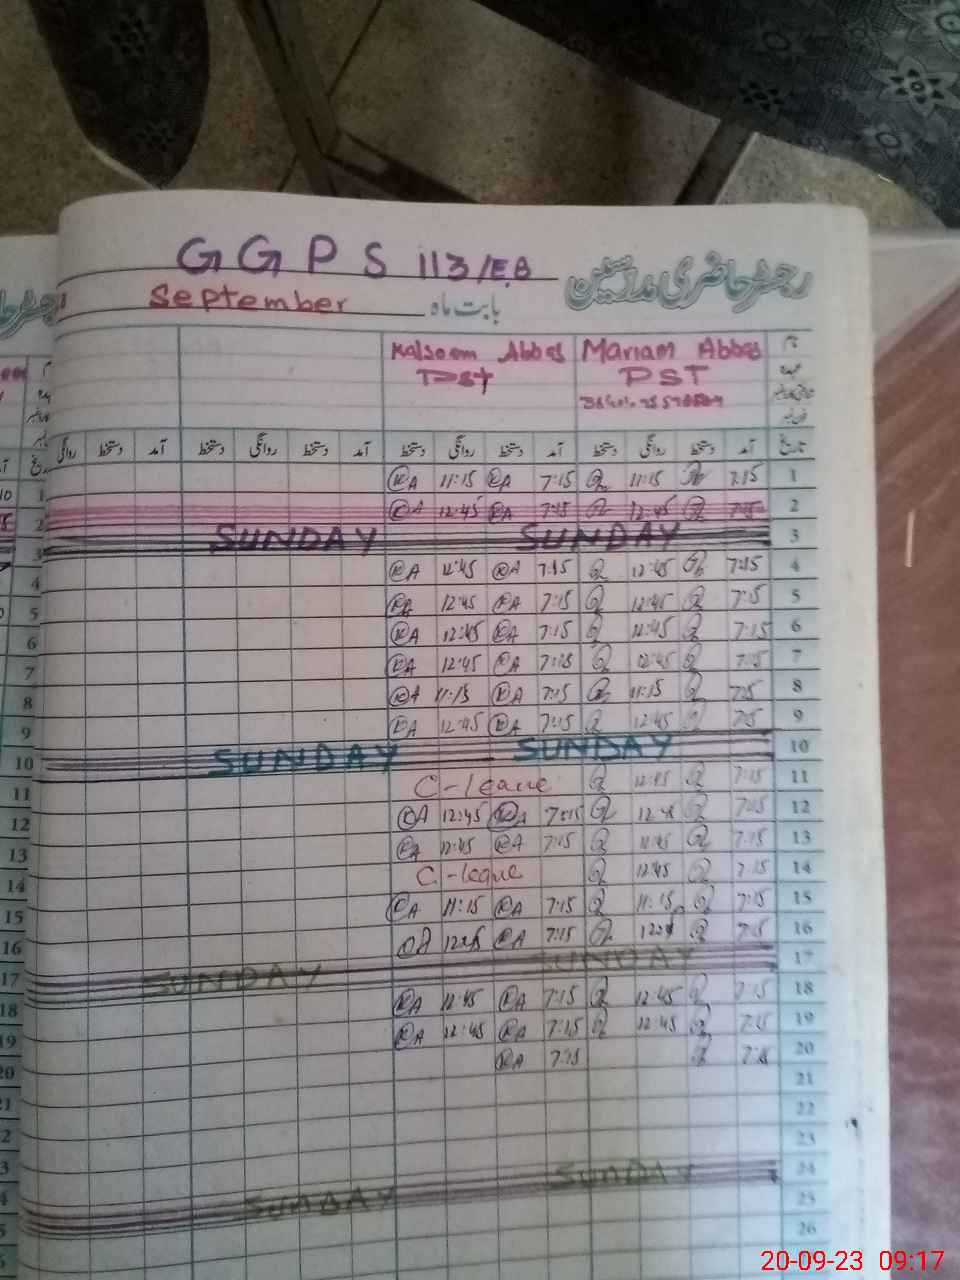 GGPS 113/E.B
رجسٹر حاضری مدرسین
September بابت ماہ
Kalsoom Abbas Mariam Abbas نام
Pst PST
تاریخ آمد دستخط روانگی دستخط آمد دستخط روانگی دستخط آمد دستخط روانگی دستخط آمد دستخط روانگی
KA 11:15 KA 7:15 11:15 7:15 1
KA 12:45 KA 7:15 12:45 7:15 2
SUNDAY SUNDAY 3
KA 12:45 KA 7:15 12:45 7:15 4
KA 12:45 KA 7:15 12:45 7:15 5
KA 12:45 KA 7:15 12:45 7:15 6
KA 12:45 KA 7:15 12:45 7:15 7
KA 11:15 KA 7:15 11:15 7:15 8
KA 12:45 KA 7:15 12:45 7:15 9
SUNDAY SUNDAY 10
C-leave 12:45 7:15 11
KA 12:45 KA 7:15 12:45 7:15 12
KA 12:45 KA 7:15 12:45 7:15 13
C-leave 12:45 7:15 14
KA 11:15 KA 7:15 11:15 7:15 15
KA 7:15 7:15 16
SUNDAY SUNDAY 17
KA 12:45 KA 7:15 12:45 7:15 18
KA 12:45 KA 7:15 12:45 7:15 19
KA 7:15 7:15 20
21
22
23
SUNDAY SUNDAY 24
25
26
20-09-23 09:17